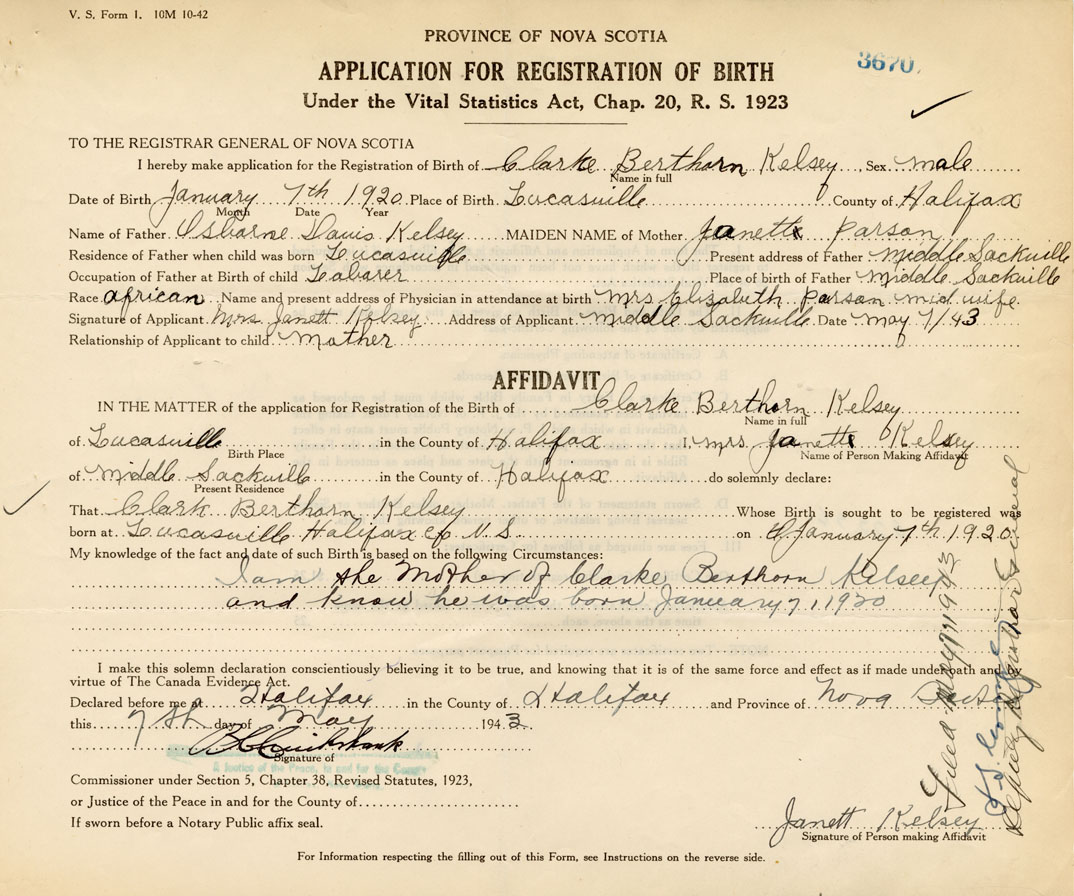 V. S. Form 1. 10M 10-42
PROVINCE OF NOVA SCOTIA
3670
APPLICATION FOR REGISTRATION OF BIRTH
Under the Vital Statistics Act, Chap. 20, R. S. 1923
TO THE REGISTRAR GENERAL OF NOVA SCOTIA
I hereby make application for the Registration of Birth of Clarke Berthorn Kelsey, Sex male
Name in full
Date of Birth January 7th 1920 Place of Birth Lucasville County of Halifax
Month Date Year
Name of Father Osborne Davis Kelsey MAIDEN NAME of Mother Janette Parson
Residence of Father when child was born Lucasville Present address of Father Middle Sackville
Occupation of Father at Birth of child Labarer Place of birth of Father Middle Sackville
Race african Name and present address of Physician in attendance at birth Mrs Elizabeth Parson mid wife
Signature of Applicant Mrs Janett Kelsey Address of Applicant Middle Sackville Date May 7/43
Relationship of Applicant to child Mother
AFFIDAVIT
IN THE MATTER of the application for Registration of the Birth of Clarke Berthorn Kelsey
Name in full
of Lucasville in the County of Halifax I, Mrs Janette Kelsey
Birth Place Name of Person Making Affidavit
of Middle Sackville in the County of Halifax do solemnly declare:
Present Residence
That Clark Berthorn Kelsey Whose Birth is sought to be registered was
born at Lucasville Halifax Co N.S. on January 7th 1920
My knowledge of the fact and date of such Birth is based on the following Circumstances:
I am the Mother of Clarke Berthorn Kelsey
and know he was born January 7, 1920
I make this solemn declaration conscientiously believing it to be true, and knowing that it is of the same force and effect as if made under oath and by
virtue of The Canada Evidence Act.
Declared before me at Halifax in the County of Halifax and Province of Nova Scotia
this 7th day of May 1943
Signature of
A Justice of the Peace, in and for the County
Commissioner under Section 5, Chapter 38, Revised Statutes, 1923,
or Justice of the Peace in and for the County of
If sworn before a Notary Public affix seal.
Janett Kelsey
Signature of Person making Affidavit
For Information respecting the filling out of this Form, see Instructions on the reverse side.
Filed May 7 1943
Deputy Registrar General